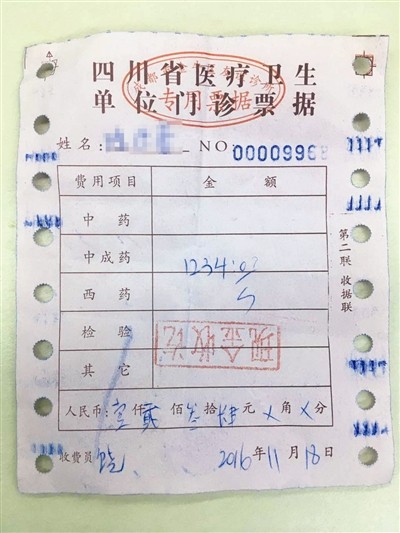 四川省医疗卫生
单位门诊票据
专用票据
姓名: NO: 0000996
费用项目 金 额
中 药
中成药 1234.
西 药
检 验
现金收讫
其 它
第二联 收据联
人民币: 壹仟贰佰叁拾肆元 × 角 × 分
收费员 2016年11月18日